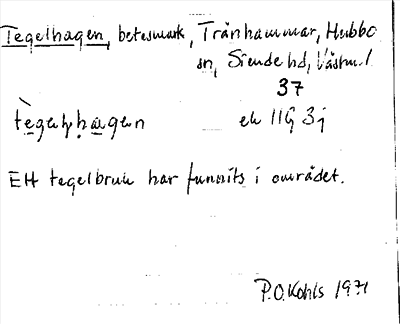 Tegelhagen, betesmark, Trånhammar, Hubbo
sn, Siende hd, Västml.
37
tègəlhagen ek 11G 3j
Ett tegelbruk har funnits i området.
P.O. Kohls 1971